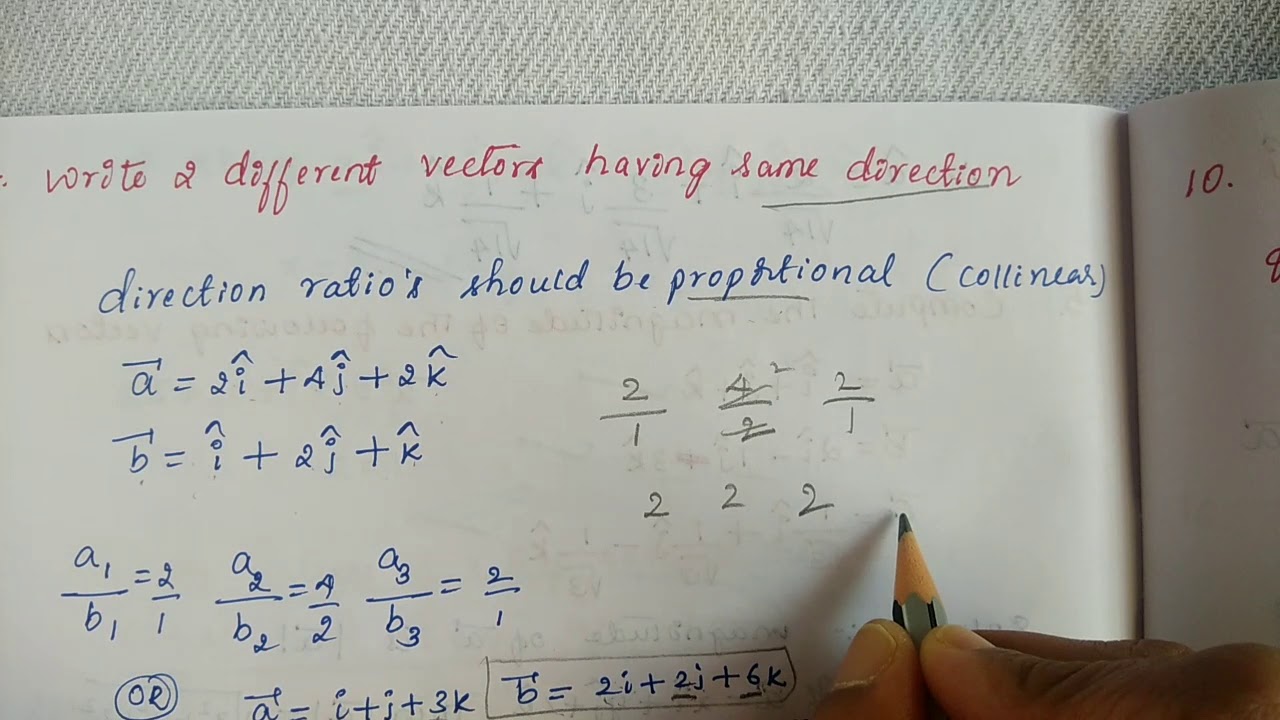 write 2 different vectors having same direction
10.
direction ratio's should be proportional (collinear)
a⃗ = 2î + 4ĵ + 2k̂
2/1 4/2 2 2/1
b⃗ = î + 2ĵ + k̂
2 2 2
a₁/b₁ = 2/1 a₂/b₂ = 4/2 a₃/b₃ = 2/1
OR a⃗ = i + j + 3k b⃗ = 2i + 2j + 6k